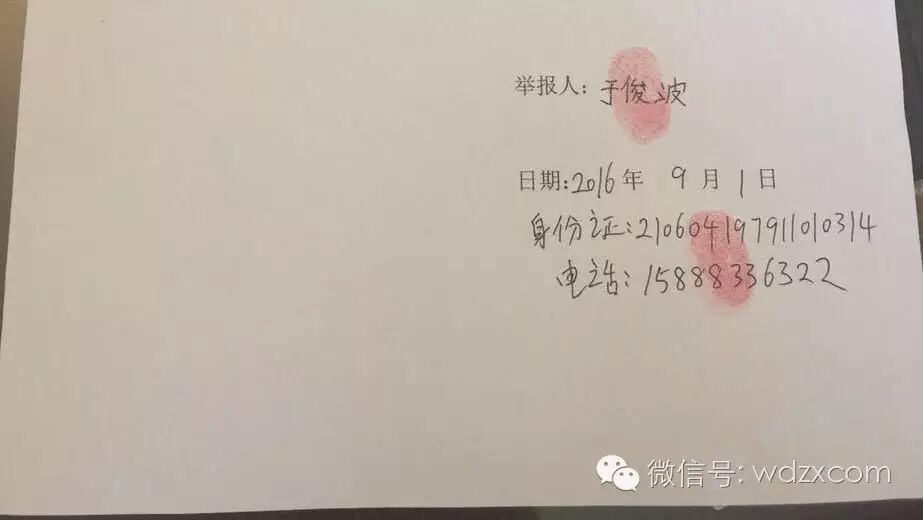 举报人: 于俊波
日期:2016年 9月 1日
身份证:210604197911010314
电话:15888336322
微信号: wdzxcom